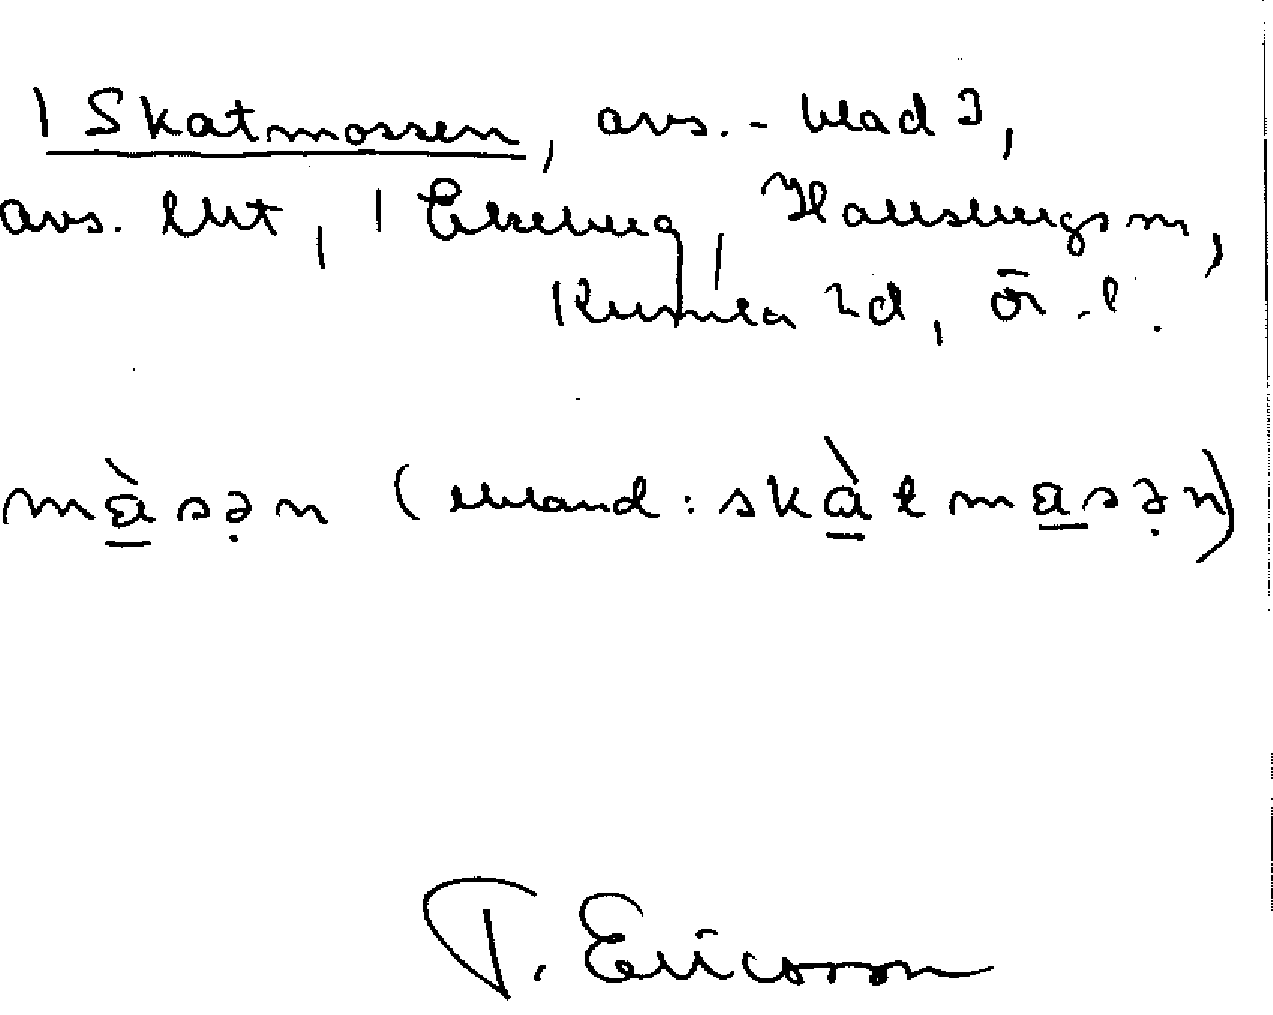 | Skatmossen, avs. - blad?,
avs. litt, | Ekeberg, Hallsbergs m,
Kumla hd, Ör. l.
mɑ̀sən (ibland: skɑ̀tmɑsən)
T. Ericsson